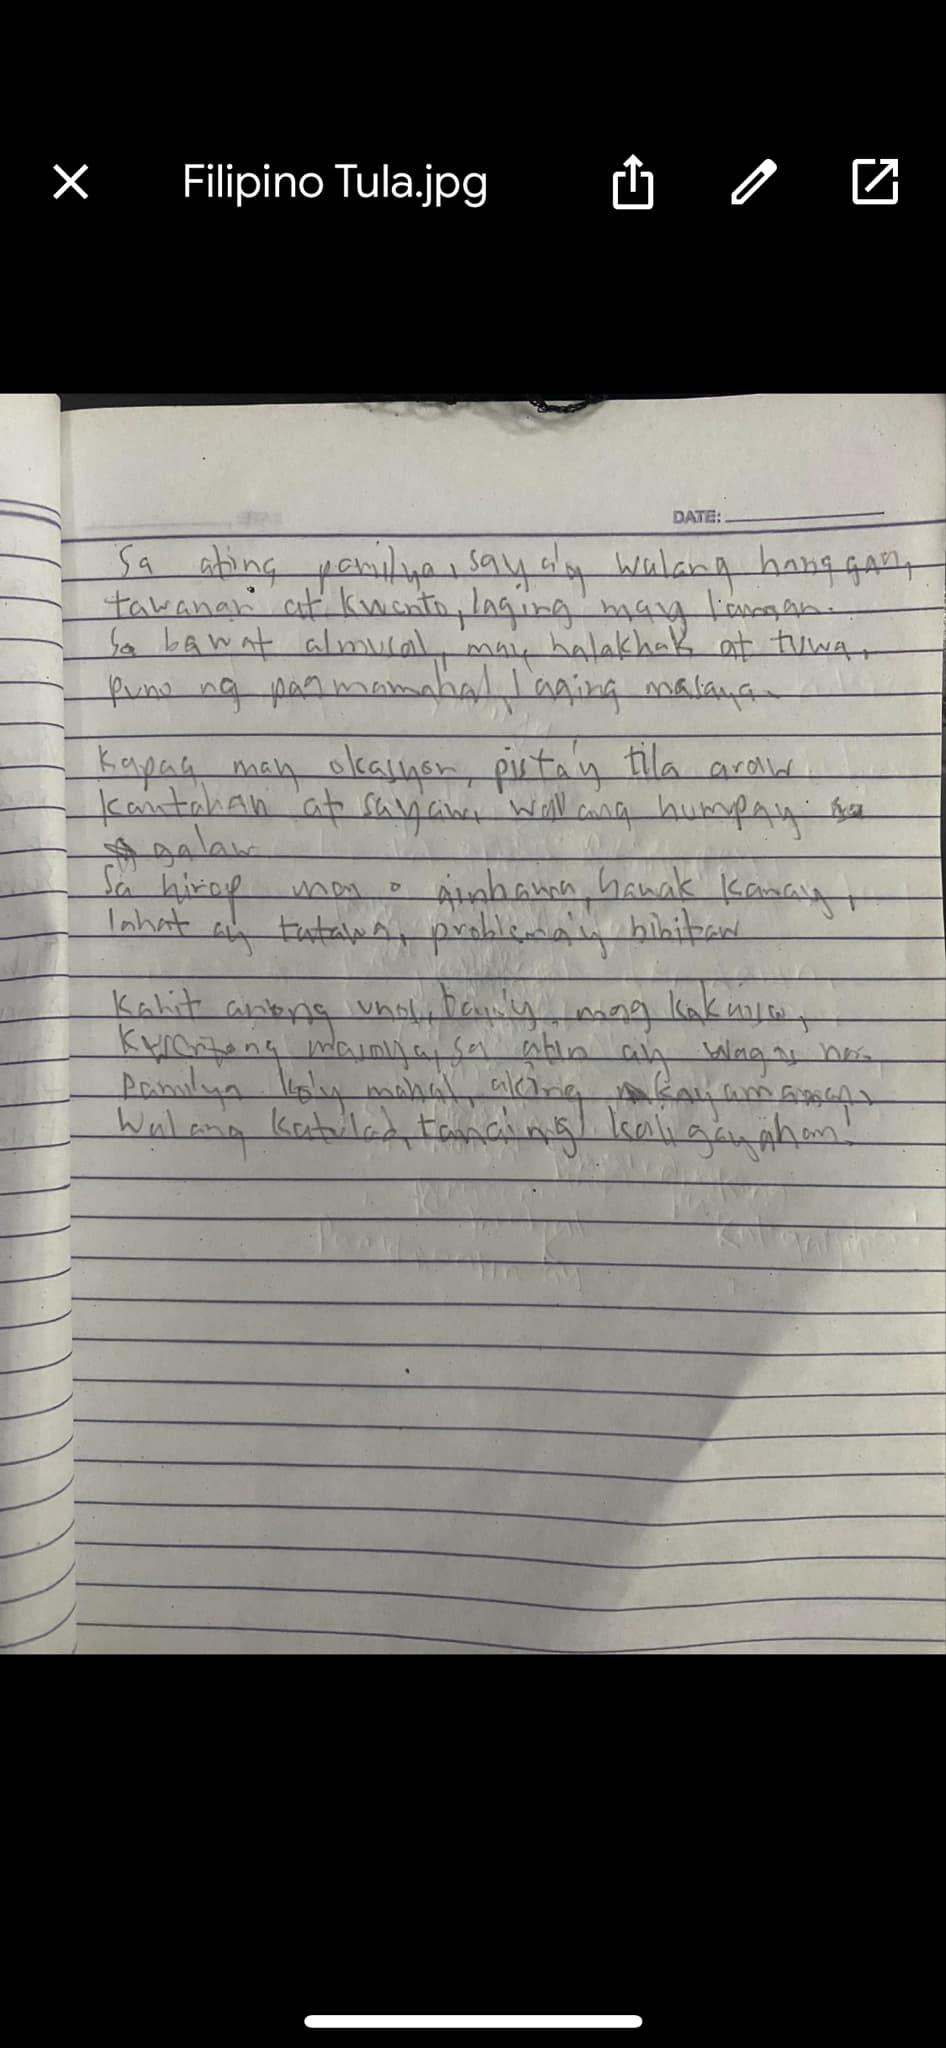 Filipino Tula.jpg
DATE:
Sa ating pamilya, saya'y walang hanggan,
tawanan at kwento, laging may laman.
Sa bawat almusal, may halakhak at tuwa,
puno ng pagmamahal, laging malaya.
Kapag may okasyon, pista'y tila araw
kantahan at sayaw, walang humpay
galaw
Sa hirap man o ginhawa, hawak kamay,
lahat ay tatawa, problema'y bibitaw
Kahit anong unos, tayo'y magkakaisa,
Kwentong masaya, sa atin ay wagas na.
Pamilya ko'y mahal, aking kayamanan,
Walang katulad, tanging kaligayahan!